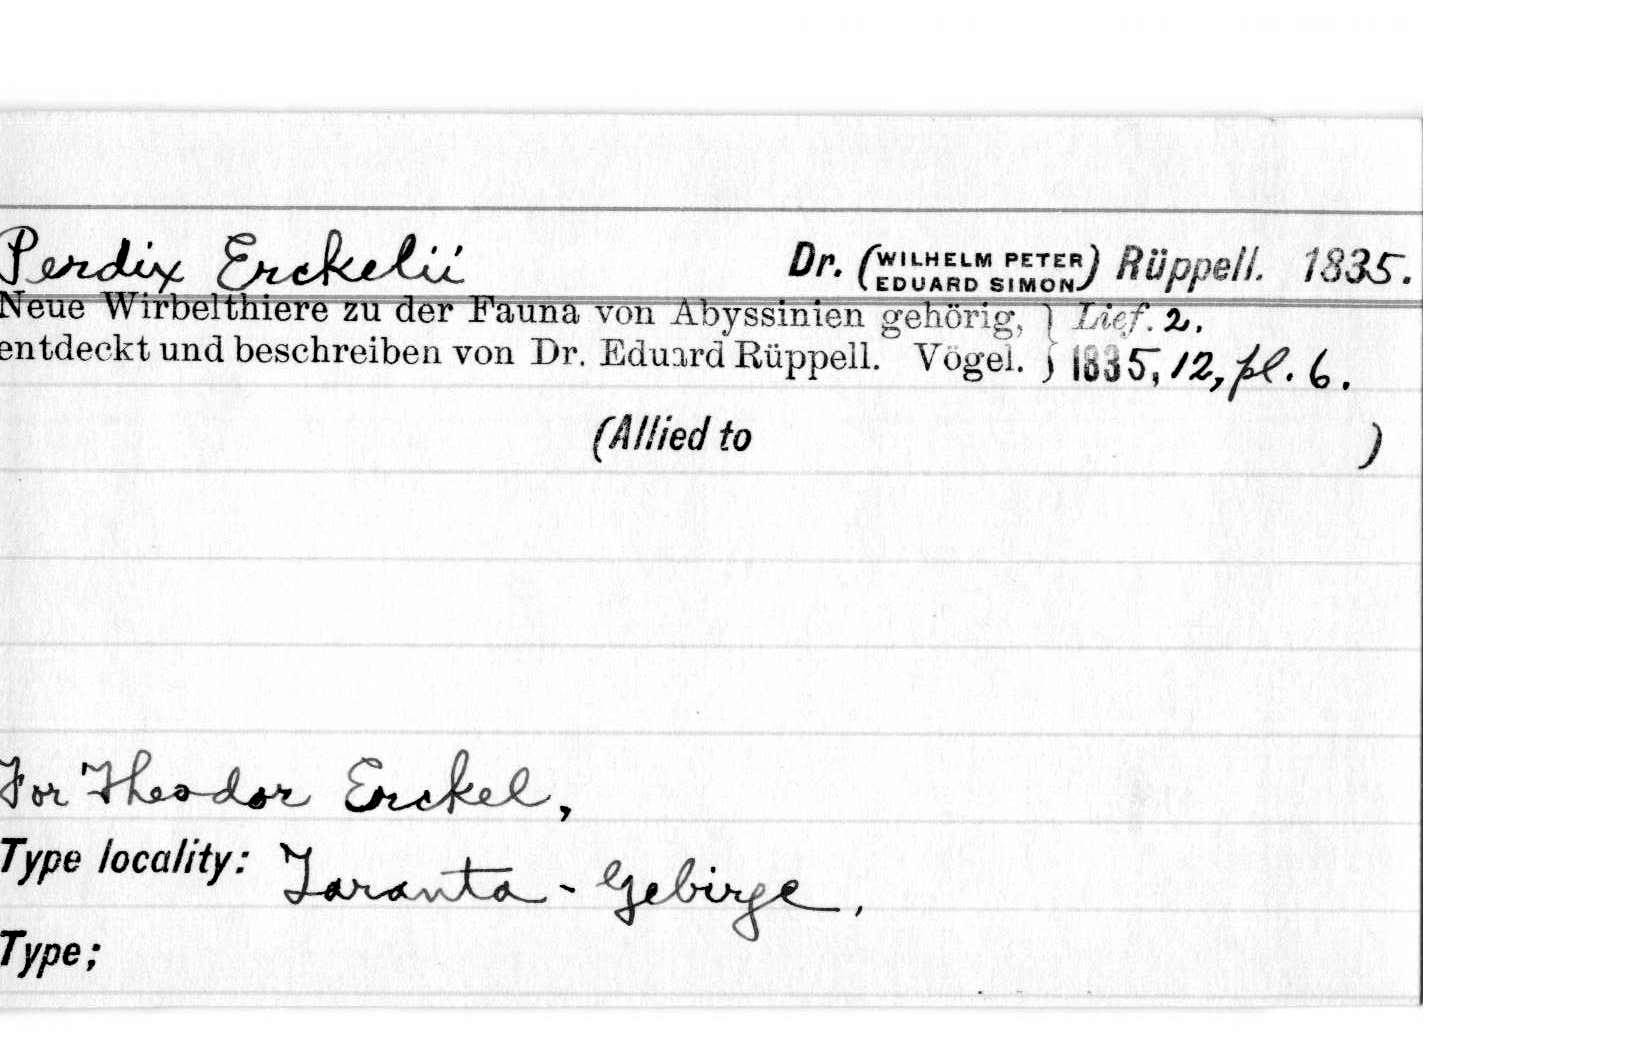 Perdix Erckelii Dr. (WILHELM PETER EDUARD SIMON) Rüppell. 1835.
Neue Wirbelthiere zu der Fauna von Abyssinien gehörig, } Lief. 2.
entdeckt und beschreiben von Dr. Eduard Rüppell. Vögel. } 1835, 12, pl. 6.
(Allied to )
For Theodor Erckel,
Type locality: Taranta - Gebirge,
Type;